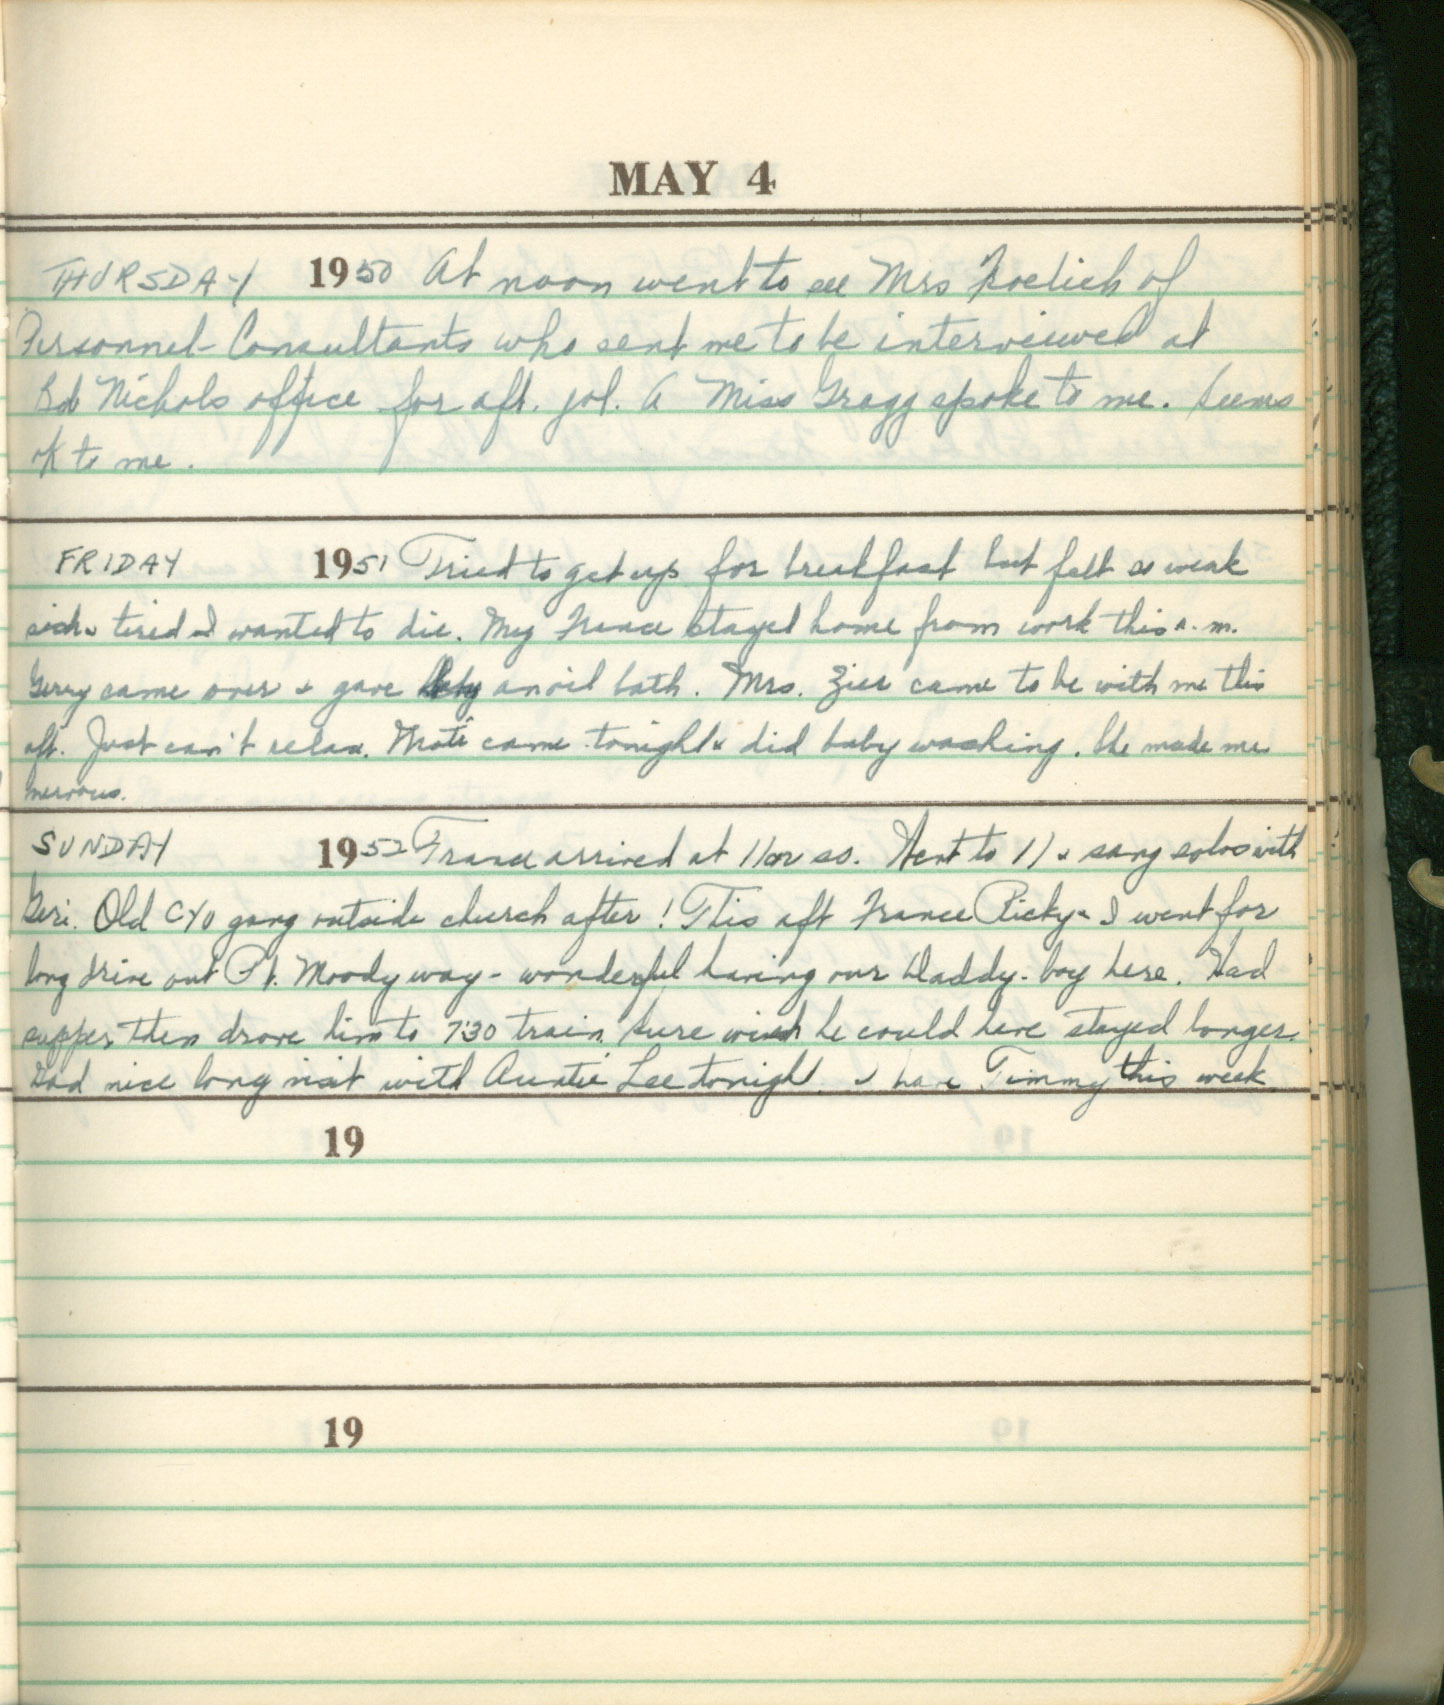 MAY 4
THURSDAY 1950 At noon went to see Mrs Froelich of
Personnel Consultants who sent me to be interviewed at
Bob Nichols office for aft. job. A Miss Gragg spoke to me. Seems
ok to me.
FRIDAY 1951 Tried to get up for breakfast but felt so weak
sick & tired I wanted to die. My France stayed home from work this a.m.
Gerry came over & gave Baby an oil bath. Mrs. Zier came to be with me this
aft. Just can't relax. came tonight & did baby washing. She made me
nervous.
SUNDAY 1952 France arrived at 11 or so. Went to 11 & sang solos with
Geri. Old CYO gang outside church after! This aft France Ricky & I went for
long drive out Pt. Moody way - wonderful having our Daddy-boy here. Had
supper then drove him to 7:30 train. Sure wish he could have stayed longer.
Had nice long visit with Auntie Lee tonight. I have Timmy this week
19
19